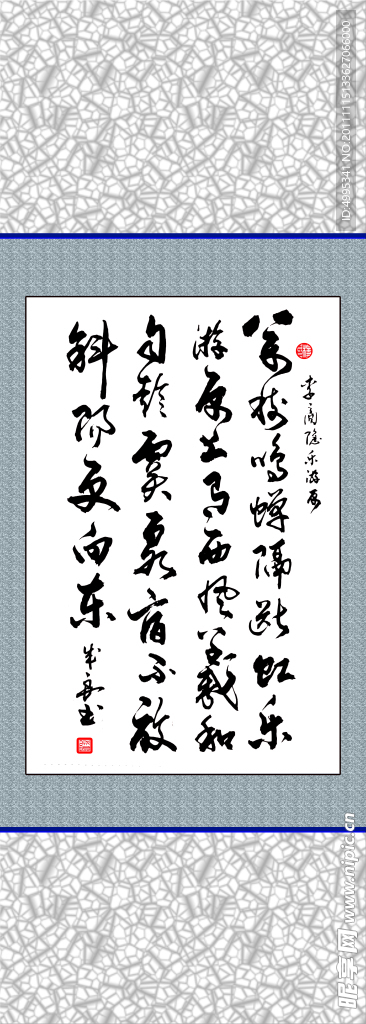 李商隐乐游原
萬树鸣蝉隔断虹乐
游原上有西风羲和
自趁虞泉宿不放
斜阳更向东
书
ID:4995341 NO:20111115133627066000
昵享网 www.nipic.cn